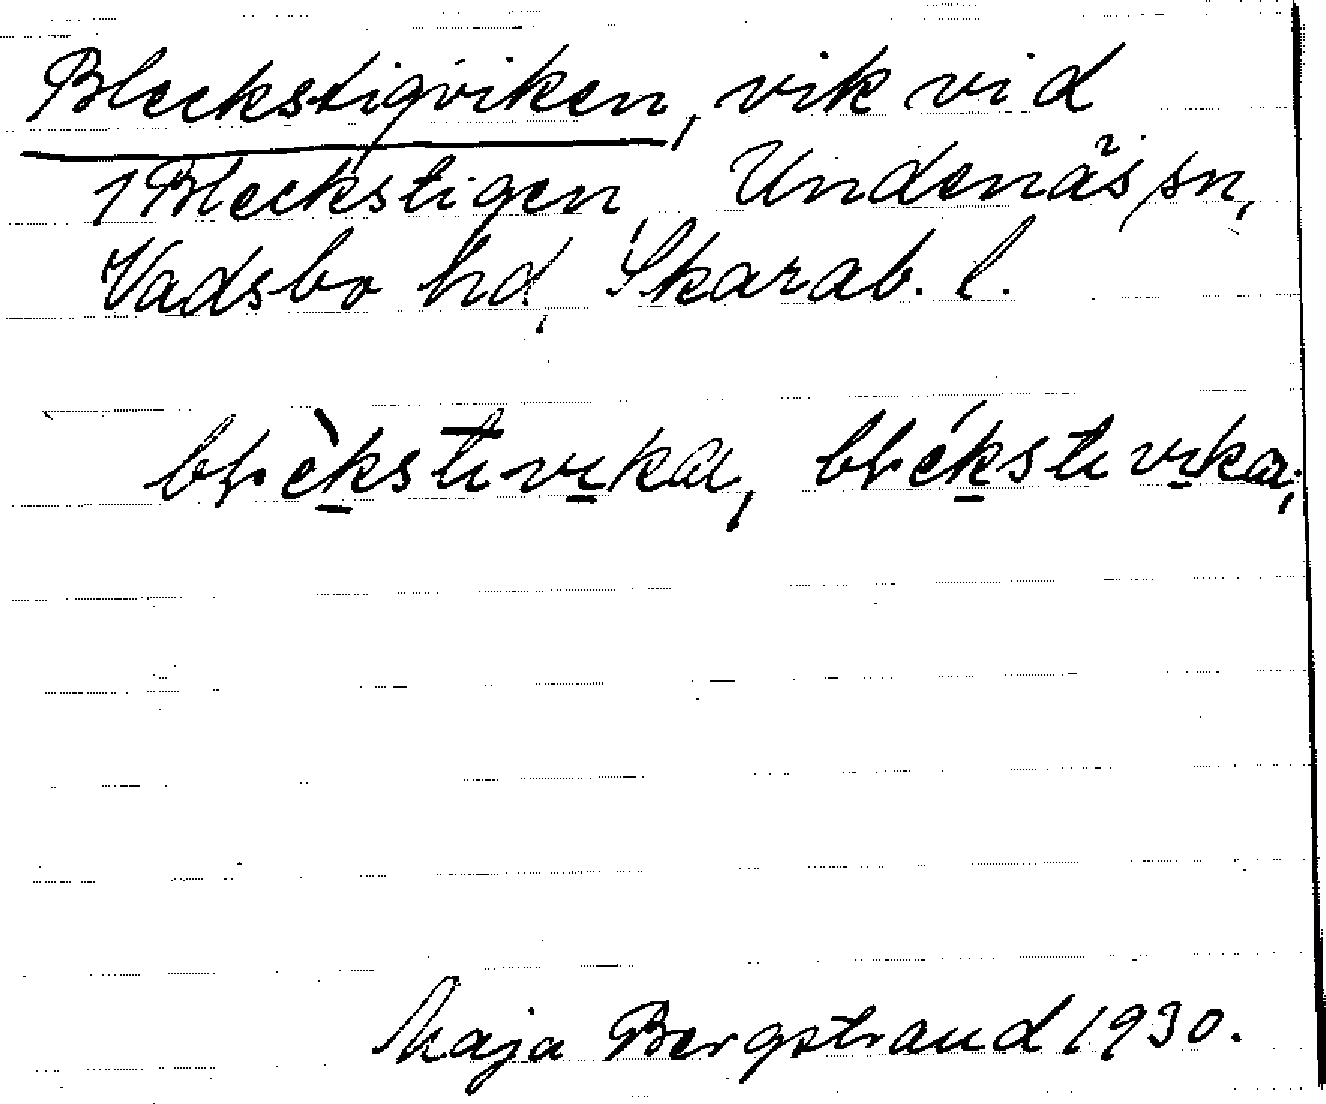 Bleckstigviken, vik vid
1 Bleckstigen, Undenäs sn,
Vadsbo hd, Skarab. l.
Maja Bergstrand 1930.